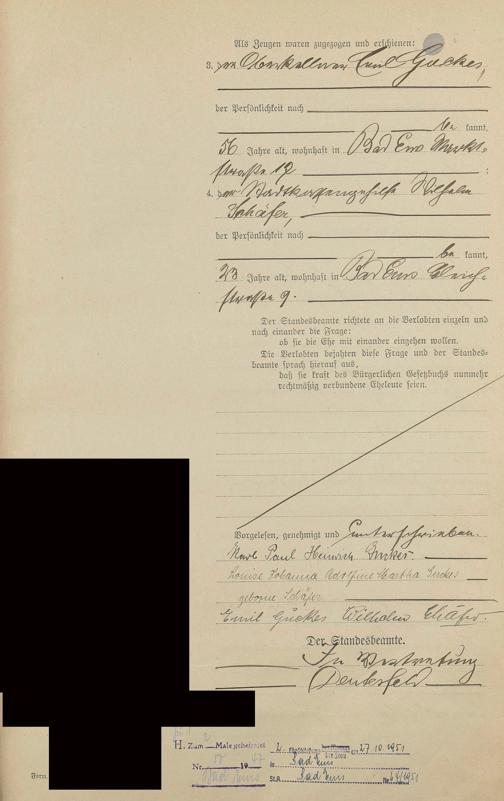 Als Zeugen waren zugezogen und erschienen:
3. der Oberkellner Emil Guckes,
der Persönlichkeit nach
be kannt,
56 Jahre alt, wohnhaft in Bad Ems Markt-
straße 12 ;
4. der Stadtkassengehilfe Wilhelm
Schäfer,
der Persönlichkeit nach
be kannt,
23 Jahre alt, wohnhaft in Bad Ems
straße 9.
Der Standesbeamte richtete an die Verlobten einzeln und
nach einander die Frage:
ob sie die Ehe mit einander eingehen wollen.
Die Verlobten bejahten diese Frage und der Standes-
beamte sprach hierauf aus,
daß sie kraft des Bürgerlichen Gesetzbuchs nunmehr
rechtmäßig verbundene Eheleute seien.
Vorgelesen, genehmigt und unterschrieben.
Karl Paul Heinrich Guckes.
Louise Johanna Adolfine Martha Guckes
geborne Schäfer
Emil Guckes Wilhelm Schäfer.
Der Standesbeamte.
In Vertretung
H. Zum Male geheiratet
Nr. 19
Bad Ems
27.10.1951
in Bad Ems
St.A. Bad Ems Nr.
Form.